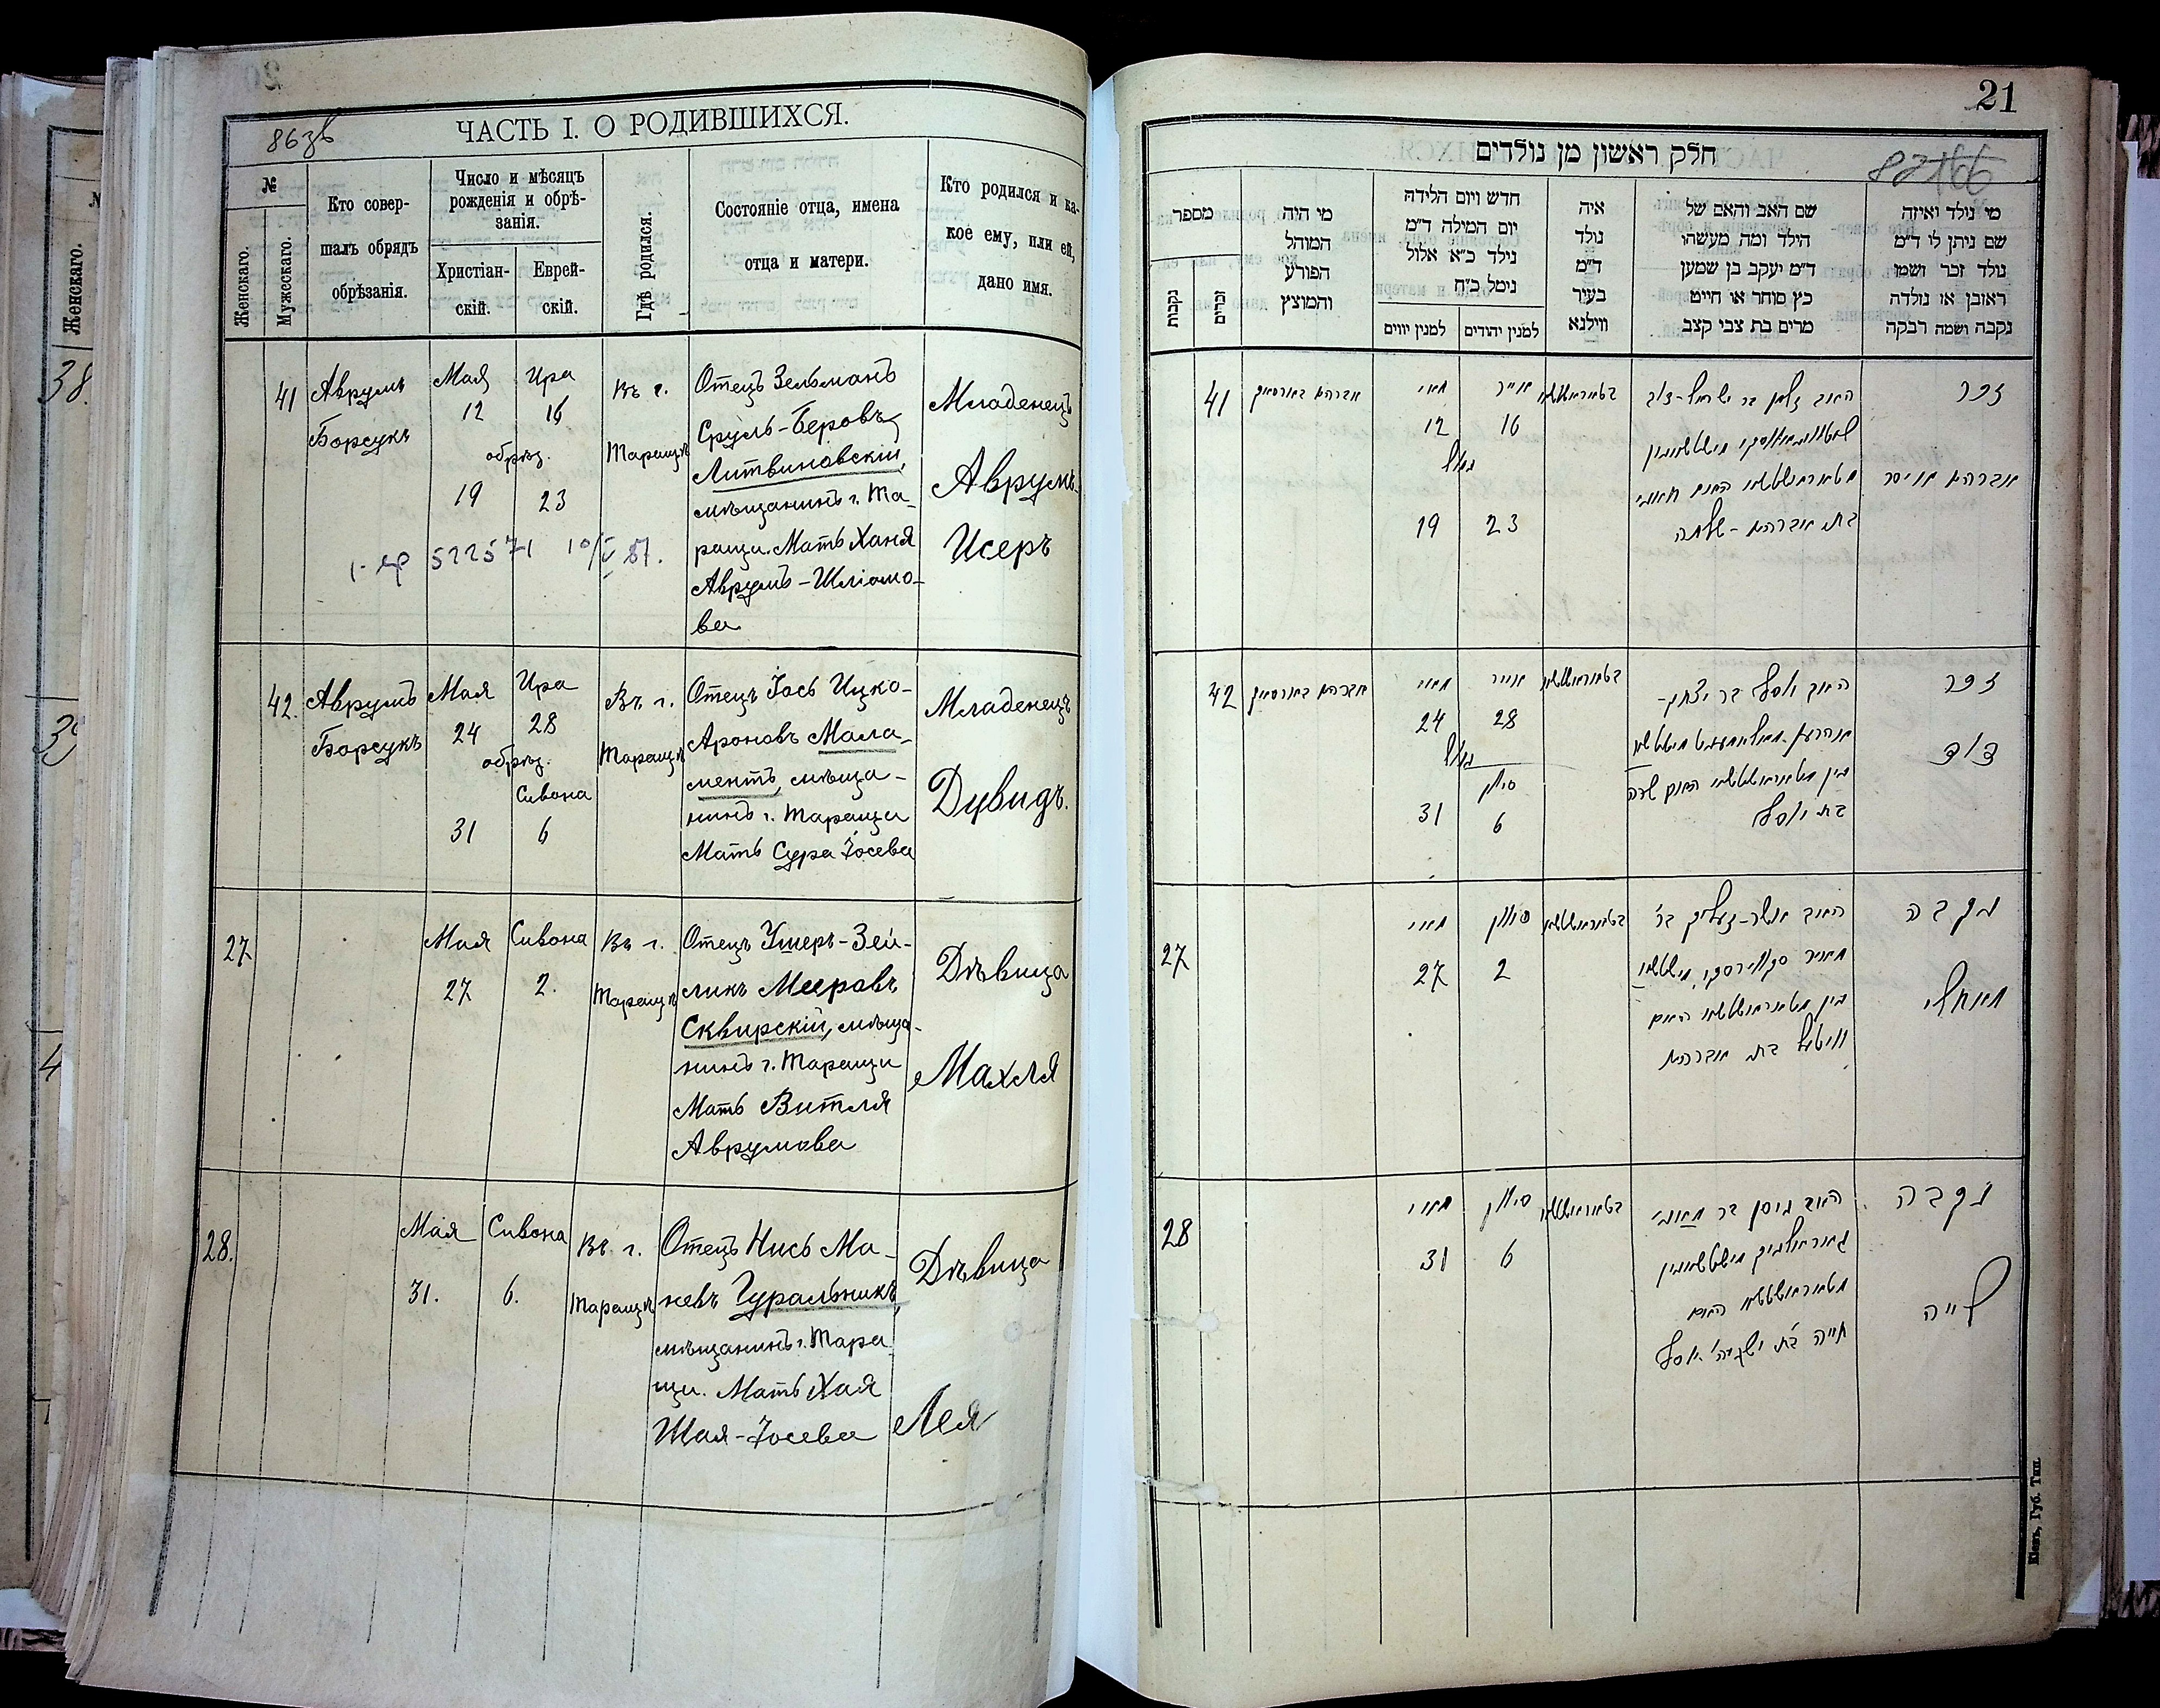 86зв
ЧАСТЬ I. О РОДИВШИХСЯ.
№
Женскаго.
Мужескаго.
Кто совер-
шалъ обрядъ
обрѣзанія.
Число и мѣсяцъ
рожденія и обрѣ-
занія.
Христіан-
скій.
Еврей-
скій.
Гдѣ родился.
Состояніе отца, имена
отца и матери.
Кто родился и ка-
кое ему, или ей,
дано имя.
41
Аврумъ
Борсукъ
Мая
12
Ира
16
обрѣз.
19
23
Въ г.
Таращѣ
Отецъ Зельманъ
Сруль-Беровъ
Литвиновскій,
мѣщанинъ г. Та-
ращи. Мать Ханя
Аврумъ-Шліомо-
ва
Младенецъ
Аврумъ
Исеръ
522571
42.
Аврумъ
Борсукъ
Мая
24
Ира
28
обрѣз.
Сивона
31
6
Въ г.
Таращѣ
Отецъ Іось Ицко-
Ароновъ Мала-
ментъ, мѣща-
нинъ г. Таращи
Мать Сура Іосева
Младенецъ
Дувидъ.
27
Мая
27
Сивона
2.
Въ г.
Таращѣ
Отецъ Ушеръ-Зей-
ликъ Мееровъ
Сквирскій, мѣща-
нинъ г. Таращи
Мать Витля
Аврумова
Дѣвица
Махля
28.
Мая
31.
Сивона
6.
Въ г.
Таращѣ
Отецъ Нись Ма-
невъ Гуральникъ,
мѣщанинъ г. Тара
щи. Мать Хая
Шая-Іосева
Дѣвица
Лея
38.
Женскаго.
21
חלק ראשון מן נולדים
מספר
נקבות
זכרים
מי היה
המוהל
הפורע
והמוצץ
חדש ויום הלידה
יום המילה ד״מ
נילד כ״א אלול
נימל כ״ח
למנין יווים
למנין יהודים
איה
נולד
ד״מ
בעיר
ווילנא
שם האב והאם של
הילד ומה מעשהו
ד״מ יעקב בן שמעון
כץ סוחר או חייט
מרים בת צבי קצב
מי נולד ואיזה
שם ניתן לי ד״מ
נולד זכר ושמו
ראובן או נולדה
נקבה ושמה רבקה
41
אברהם בארסוק
מאי
12
אייר
16
נמול
19
23
זכר
אברהם איסר
בת אברהם-שלמה
42
אברהם בארסוק
מאי
24
אייר
28
נמול
סיון
31
6
האב יוסף בר יצחק-
בת יוסף
זכר
דוד
27
מאי
27
סיון
2
האב אשר-זעליק בר
וויטיל בת אברהם
נקבה
מאחלי
28
מאי
31
סיון
6
האב ניסן בר מאני
חיה בת ישעיה' יוסף
נקבה
לייה
Кіевъ, Губ. Тип.